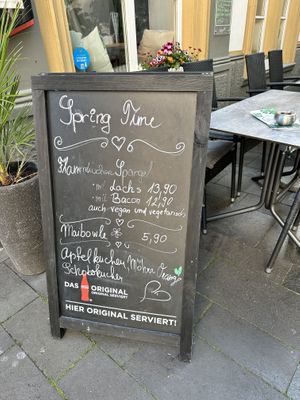 Spring Time
Flammkuchen Spargel
- mit Lachs 13,90
- mit Bacon 12,90
auch vegan und vegetarisch
Maibowle 5,90
Apfelkuchen, Möhre Orange
Schokokuchen
DAS ORIGINAL
ORIGINAL SERVIERT
HIER ORIGINAL SERVIERT!